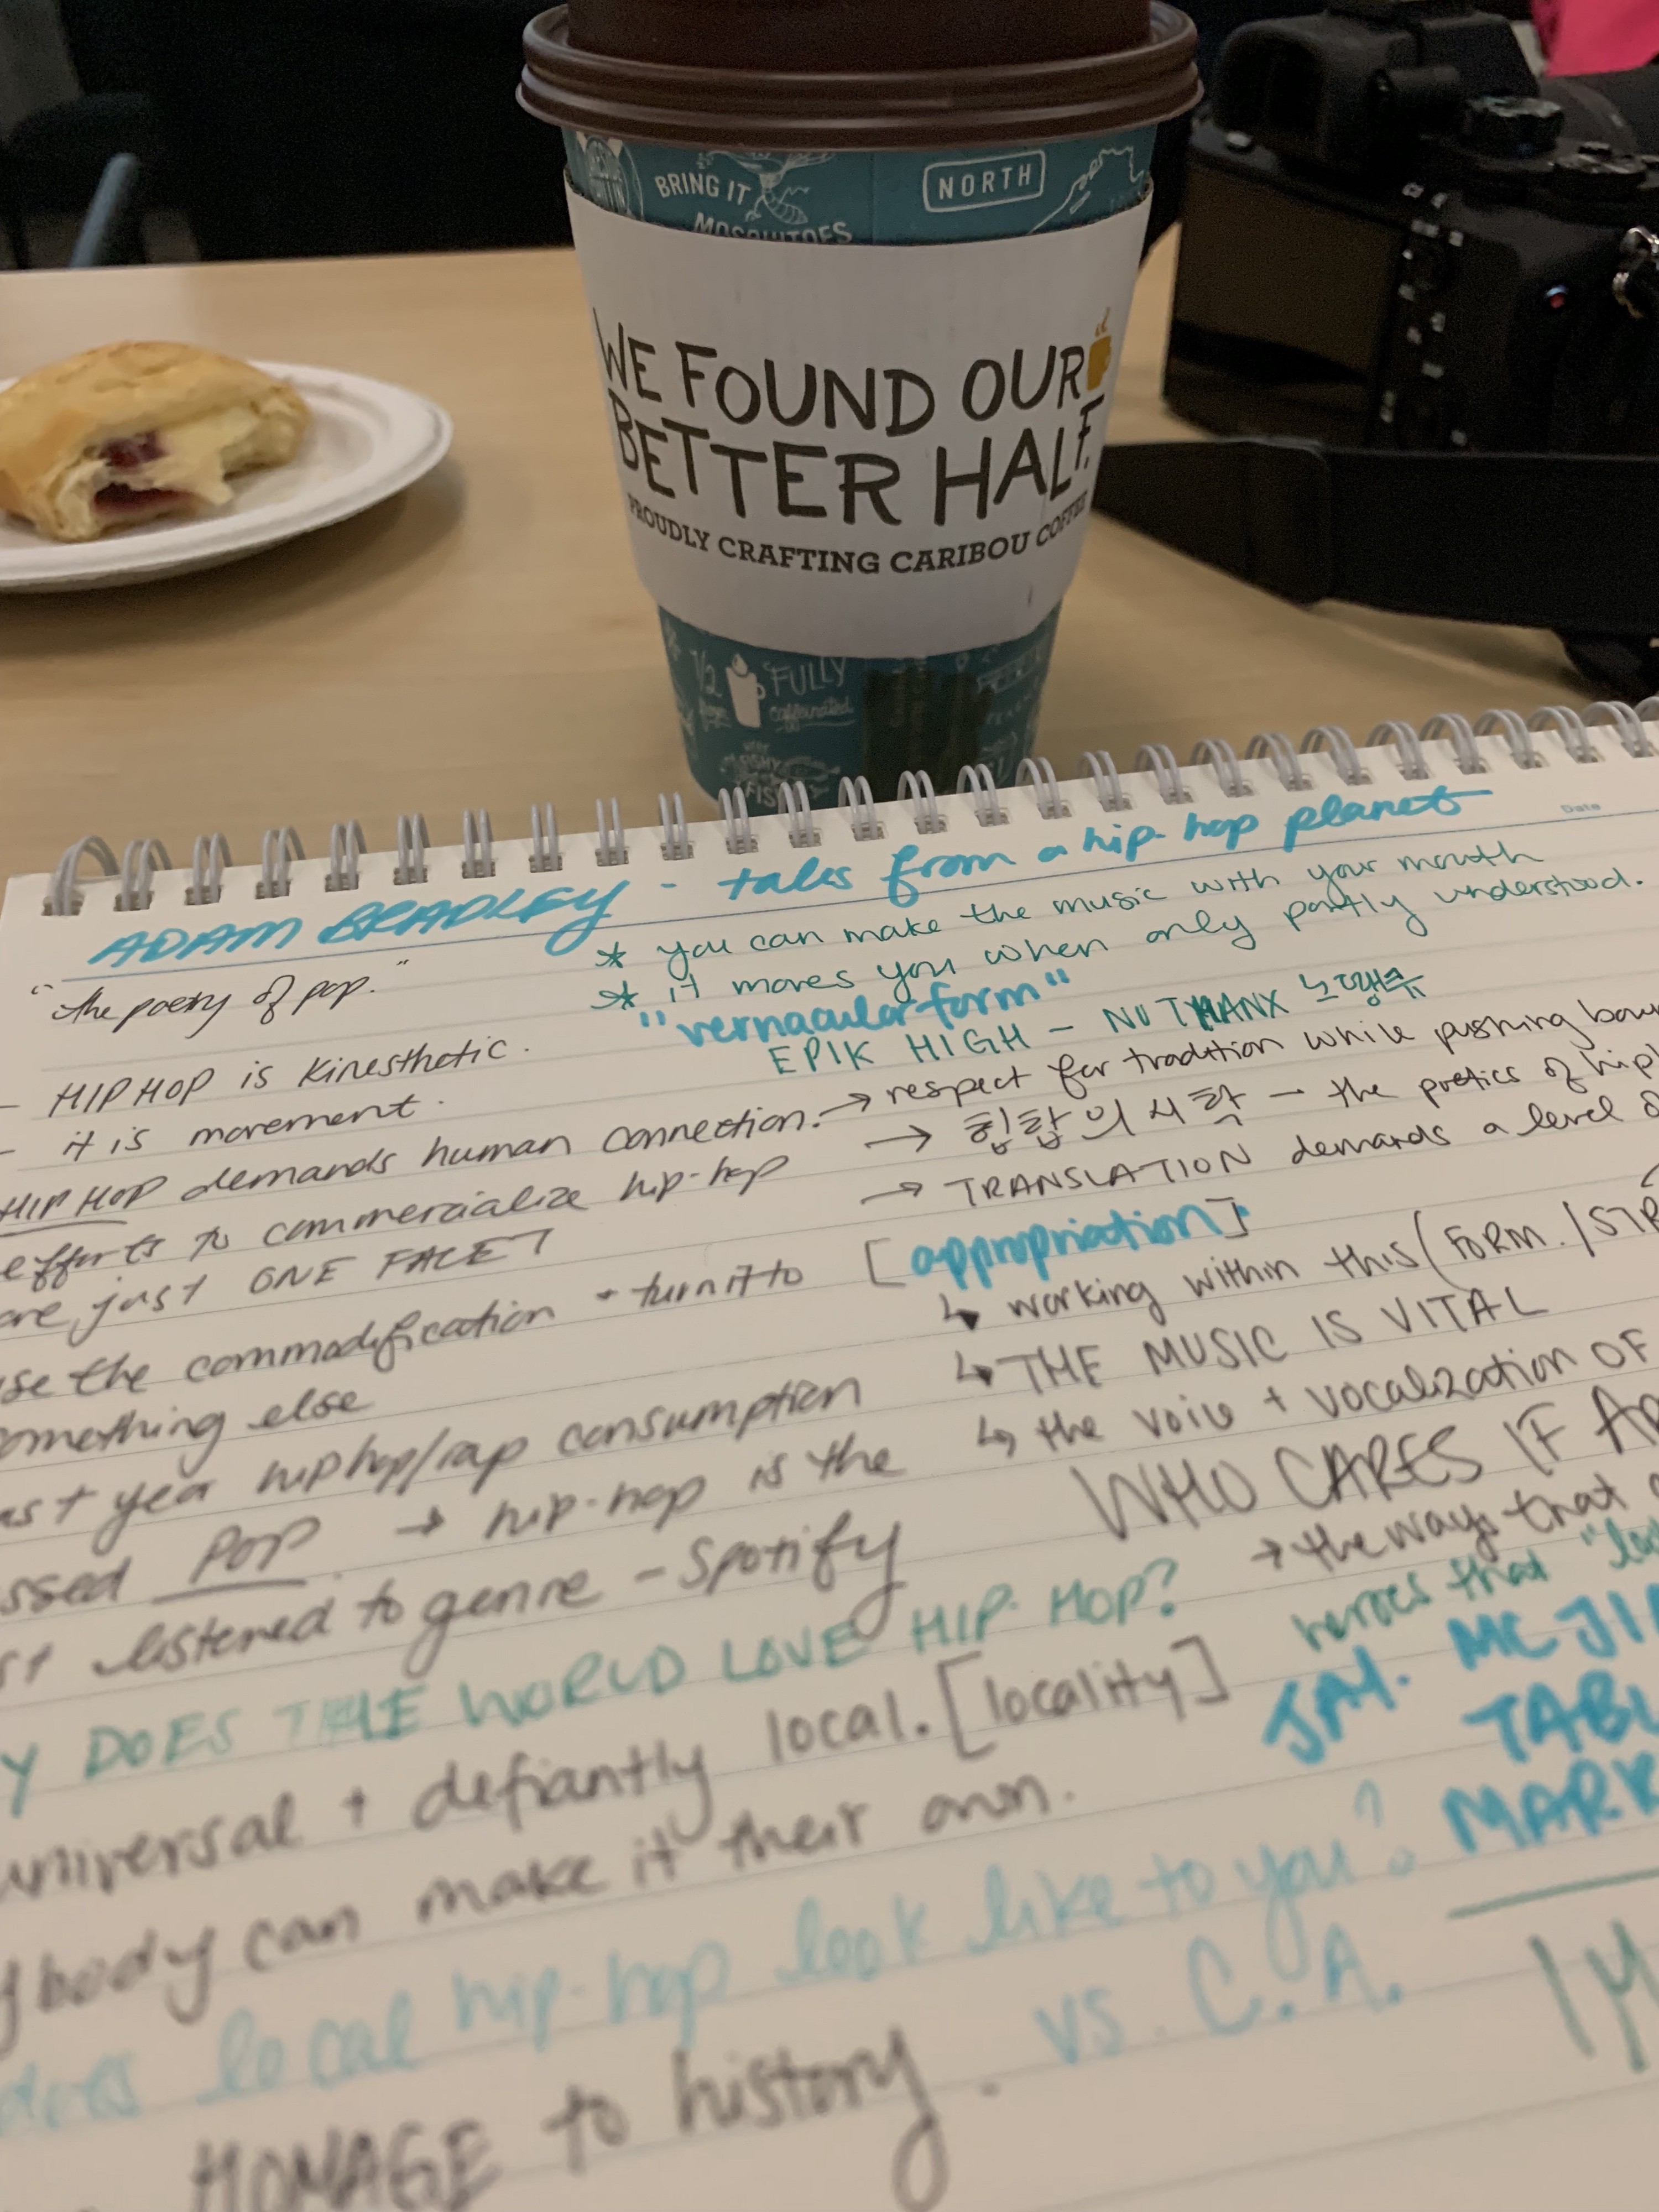 BRING IT
MOSQUITOES
NORTH
WE FOUND OUR
BETTER HALF.
PROUDLY CRAFTING CARIBOU COFFEE
1/2
FULLY
caffeinated
FIS
Date
ADAM BRADLEY - tales from a hip-hop planet
"the poetry of pop."
- HIP HOP is kinesthetic.
- it is movement.
HIP HOP demands human connection.
efforts to commercialize hip-hop
are just ONE FACET
use the commodification + turn it to
something else
last year hiphop/rap consumption
ssed POP. → hip-hop is the
st listened to genre - Spotify
Y DOES THE WORLD LOVE HIP HOP?
universal + defiantly local. [locality]
ybody can make it their own.
does local hip-hop look like to you?
HOMAGE to history. vs. C.A.
* you can make the music with your mouth
* it moves you when only partly understood.
"vernacular form"
EPIK HIGH - NO THANX 노땡큐
→ respect for tradition while pushing bou
→ 힙합의 시학 - the poetics of hip
→ TRANSLATION demands a level o
[appropriation]
↳ working within this (FORM./STR
↳ THE MUSIC IS VITAL
↳ the voice + vocalization OF
WHO CARES IF
→ the ways that
heroes that
JAY. MC JI
TABL
MARK